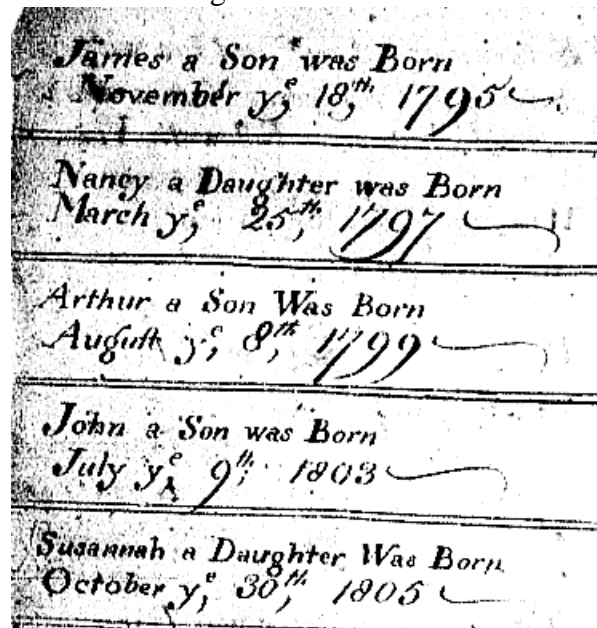 James a Son was Born
November yͤ, 18,ᵗʰ 1795
Nancy a Daughter was Born
March yͤ, 25,ᵗʰ 1797
Arthur a Son Was Born
Auguſt yͤ, 8,ᵗʰ 1799
John a Son was Born
July yͤ, 9ᵗʰ, 1803
Susannah a Daughter Was Born
October yͤ, 30,ᵗʰ 1805